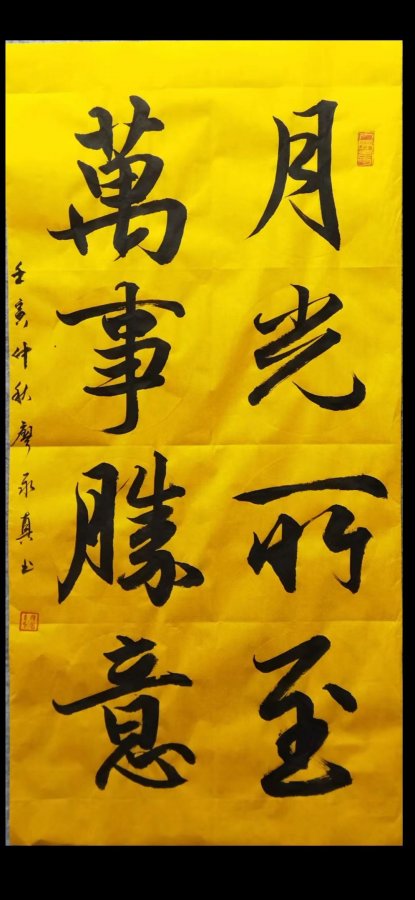 月光所至
萬事勝意
壬寅仲秋廖永真书